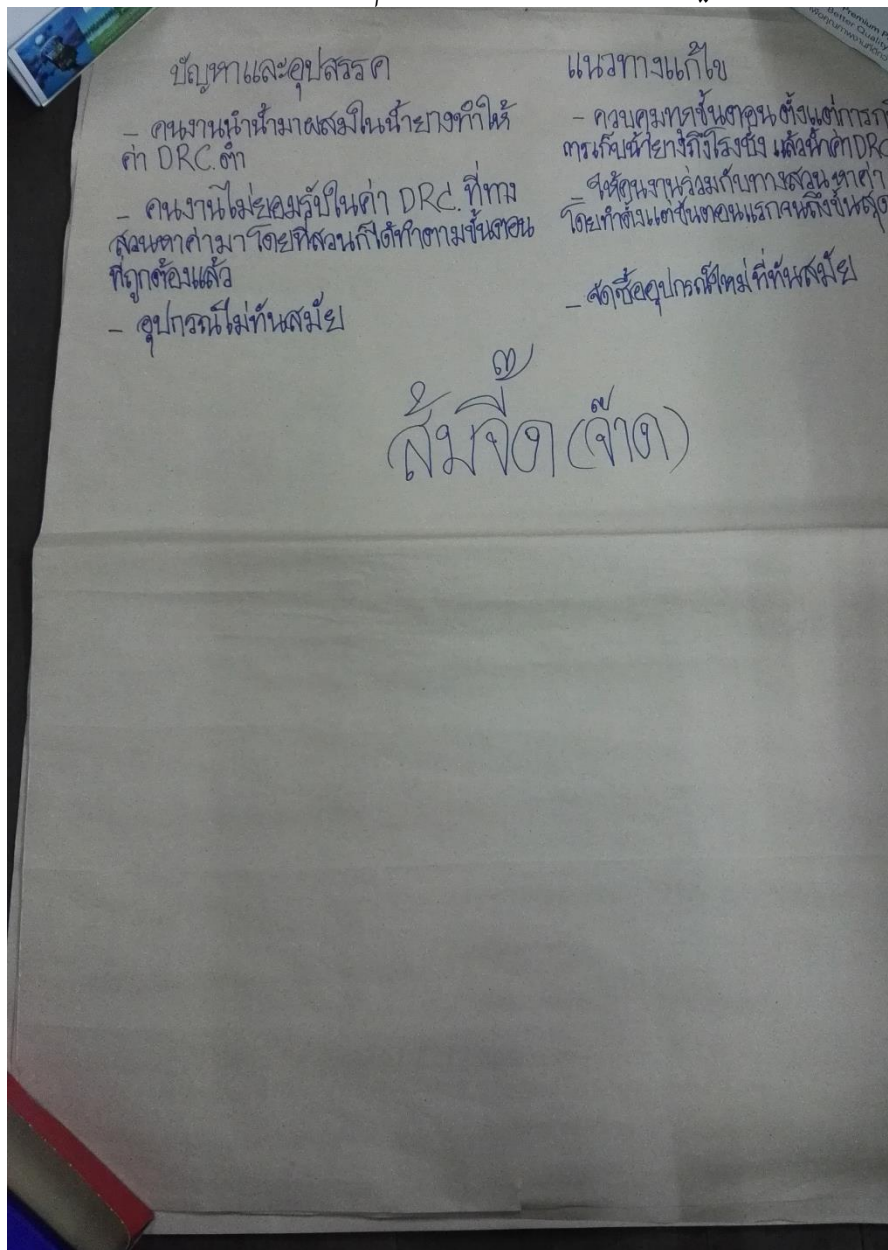 ปัญหาและอุปสรรค
- คนงานนำน้ำมาผสมในน้ำยางทำให้
ค่า DRC.ต่ำ
- คนงานไม่ยอมรับในค่า DRC. ที่ทาง
สวนหาค่ามา โดยที่สวนก็ได้ทำตามขั้นตอน
ที่ถูกต้องแล้ว
- อุปกรณ์ไม่ทันสมัย
แนวทางแก้ไข
- ควบคุมทุกขั้นตอน ตั้งแต่การ
การเก็บน้ำยางถึงโรงชั่ง แล้วนำค่า DRC
- ให้คนงานร่วมกับทางสวน หาค่า
โดยทำตั้งแต่ขั้นตอนแรกจนถึงขั้นสุด
- จัดซื้ออุปกรณ์ใหม่ที่ทันสมัย
ส้มจี๊ด (จ๊าด)
Premium
Better Quality